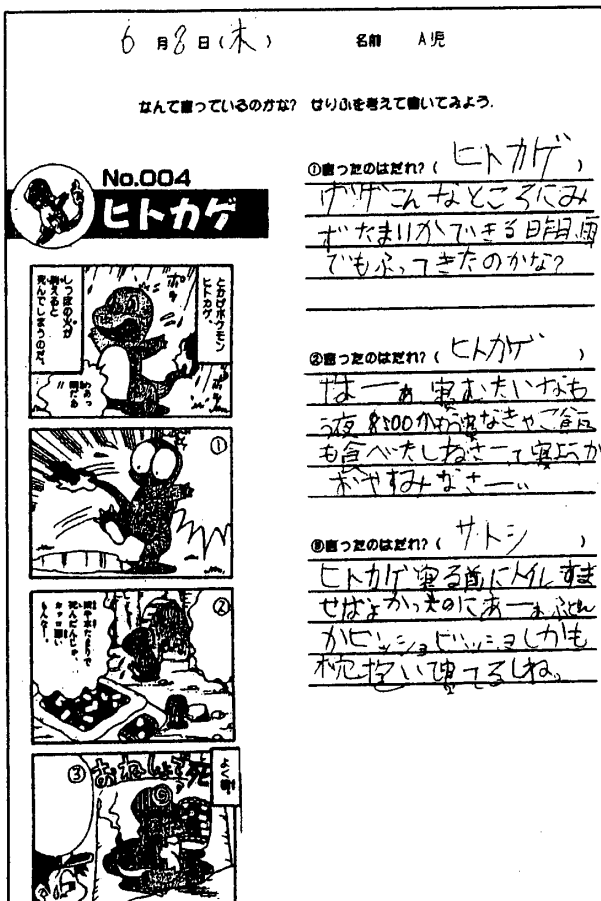 6月8日(木) 名前 A児
なんて言っているのかな? せりふを考えて書いてみよう.
No.004
ヒトカゲ
とかげポケモン
ヒトカゲ。
しっぽの火が
消えると
死んでしまうのだ。
わあっ
雨だあ
ポッ
①
②
雨や水たまりで
死んだんじゃ、
カッコ悪い
もんなー。
③
よく朝
おねしょで死
①言ったのはだれ?( ヒトカゲ )
ゲゲこんなところにみ
ずたまりができる昨日、雨
でもふってきたのかな?
②言ったのはだれ?( ヒトカゲ )
はーぁ寝むたいなも
う夜8:00かもう寝なきゃご飯
も食べたしねさーて寝ようか
おやすみなさーい
③言ったのはだれ?( サトシ )
ヒトカゲ寝る前にトイレすま
せばよかったのにあーぁふとん
がビッショビッショしかも
枕抱いて寝てるしね。